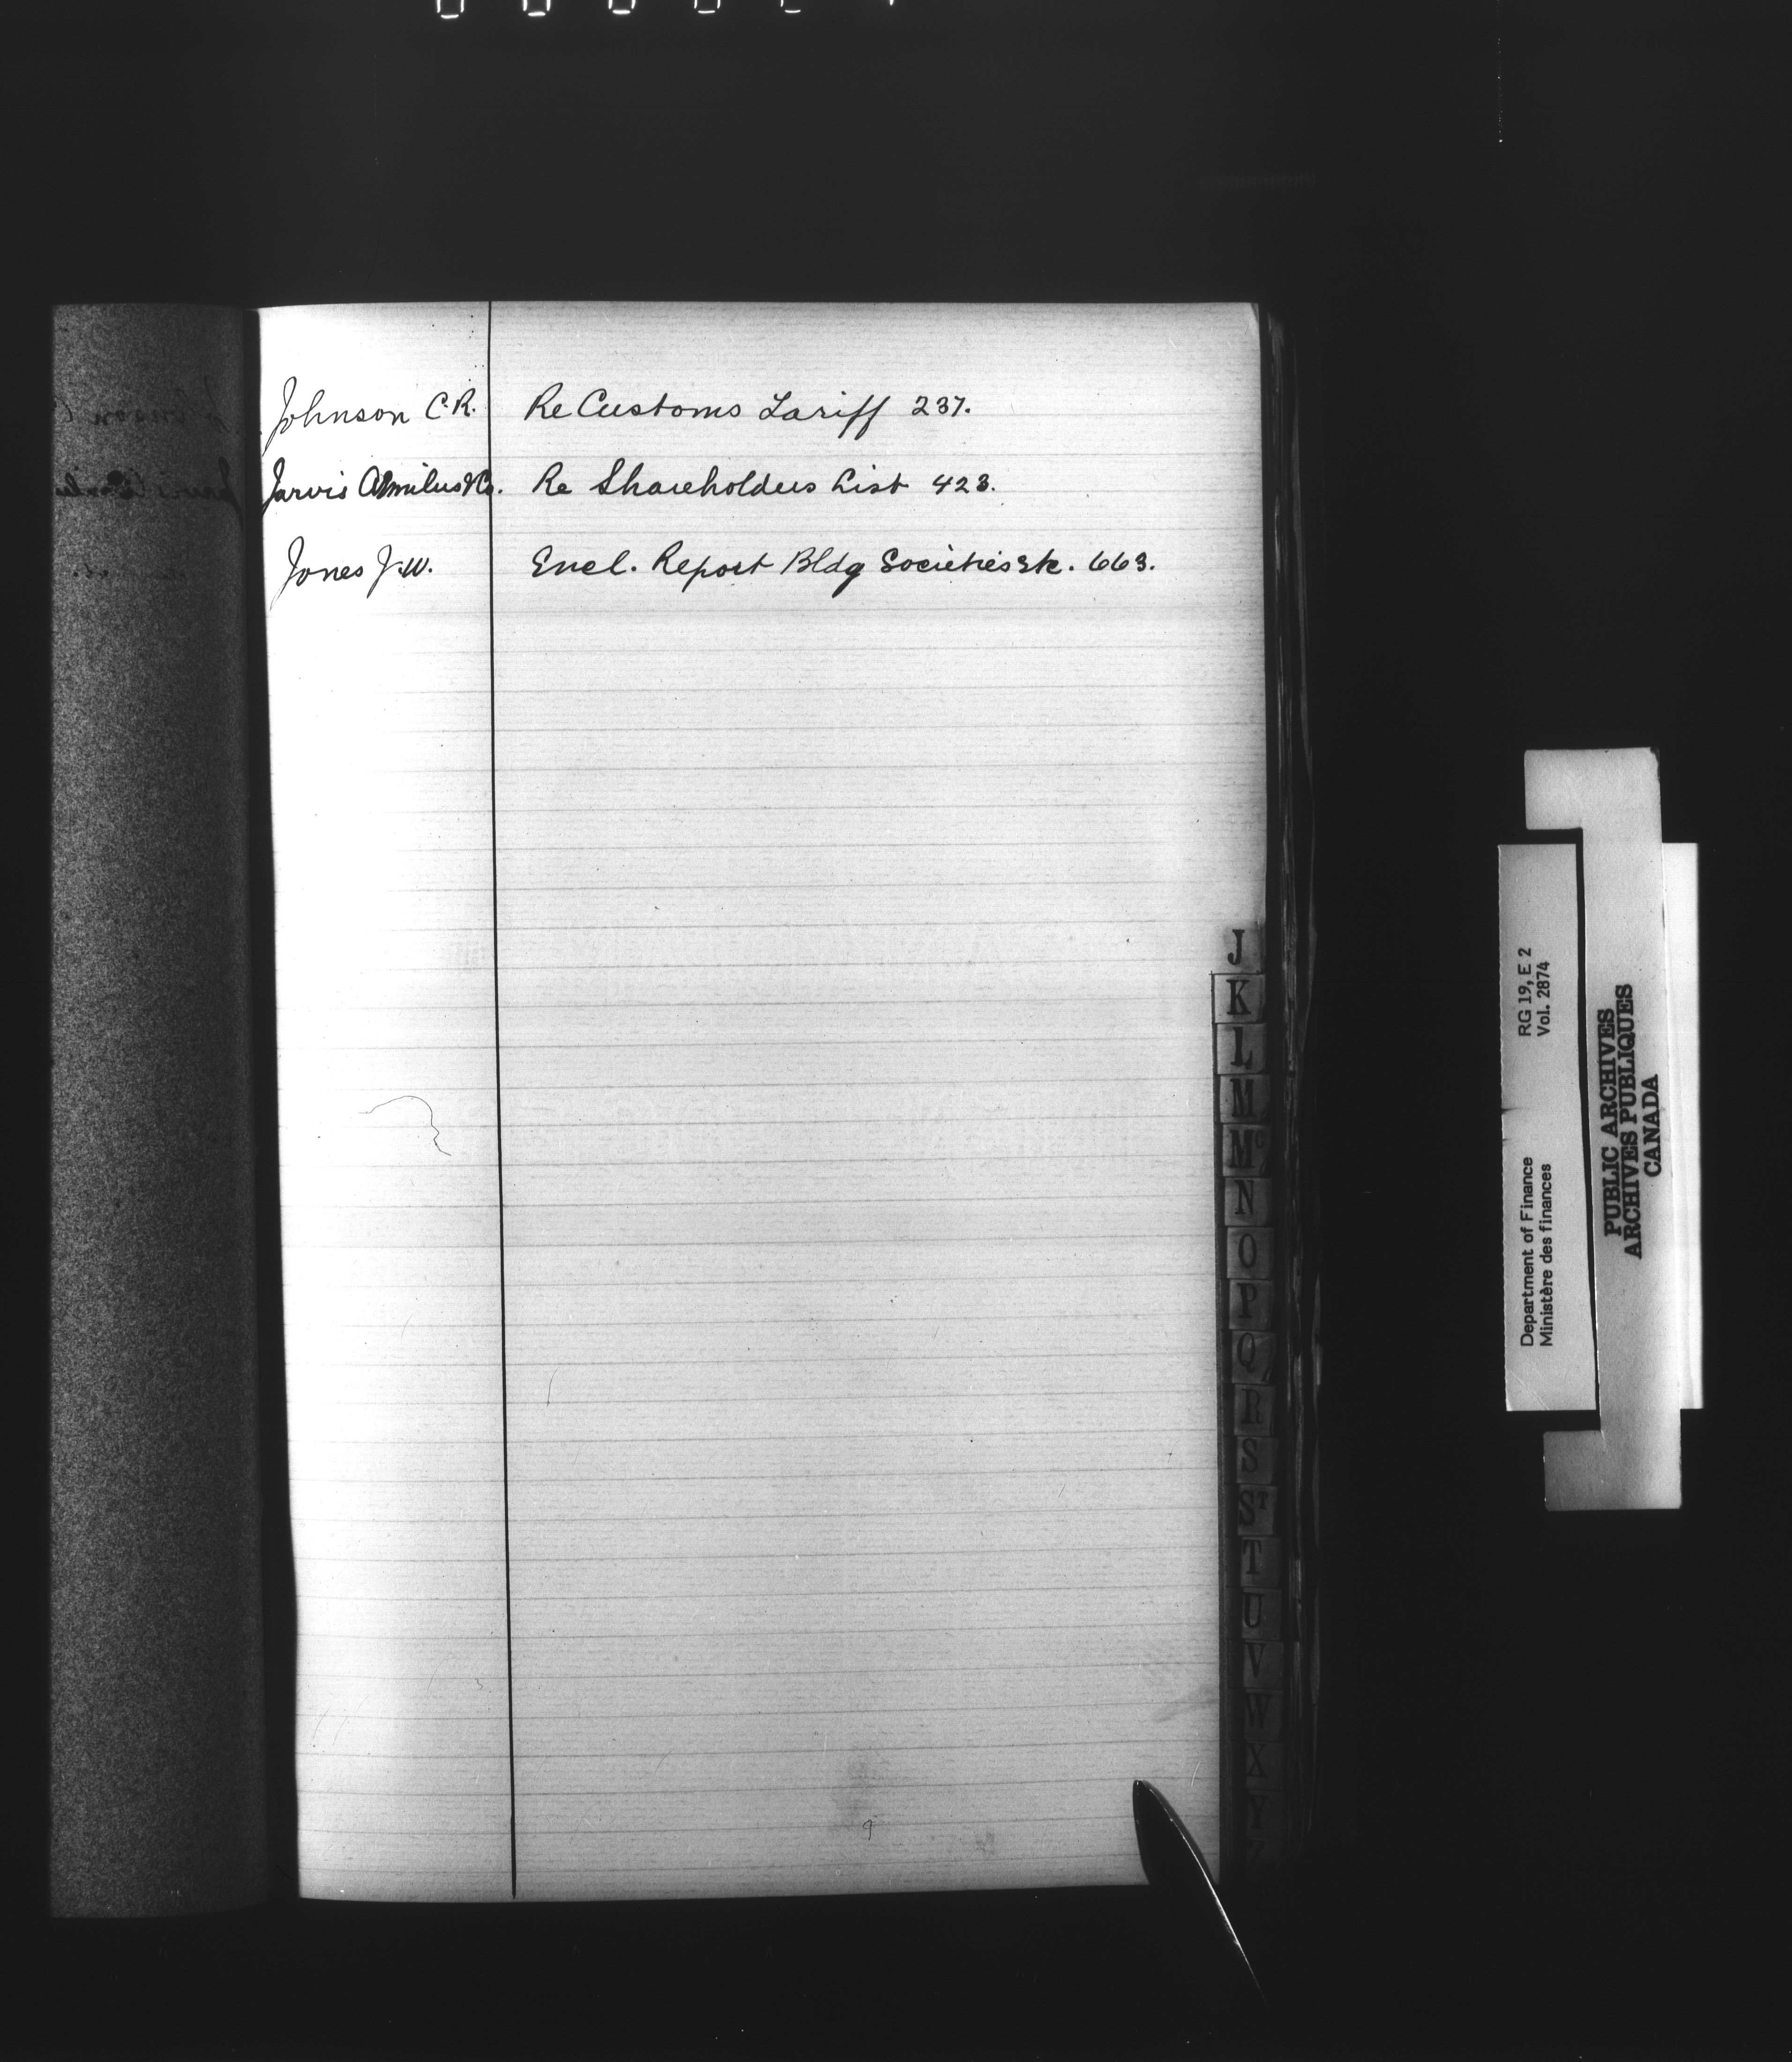 Johnson C.R. Re Customs Tariff 237.
Jarvis Æmilius & Co. Re Shareholders List 423.
Jones J.W. Encl. Report Bldg Societies Etc. 663.
J
K
L
M
Mc
N
O
P
Q
R
S
ST
T
U
V
W
X
Y
Z
Department of Finance RG 19, E 2
Ministère des finances Vol. 2874
PUBLIC ARCHIVES
ARCHIVES PUBLIQUES
CANADA